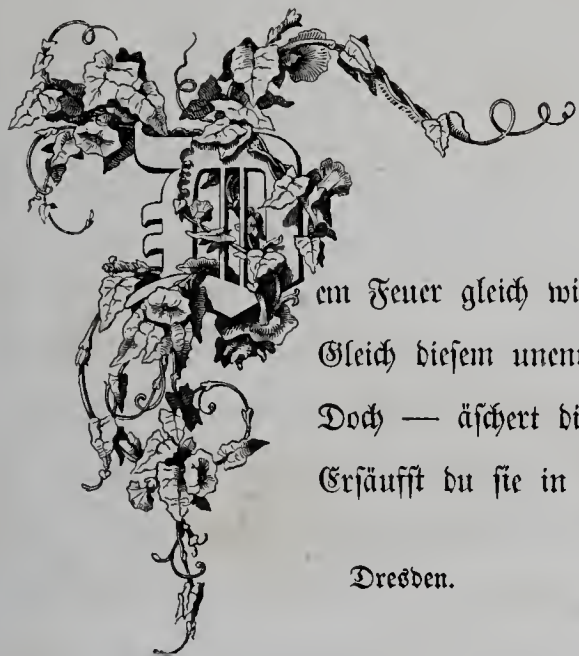 Dem Feuer gleich wi
Gleich dieſem
Doch — äſchert di
Erſäufſt du ſie in
Dresden.